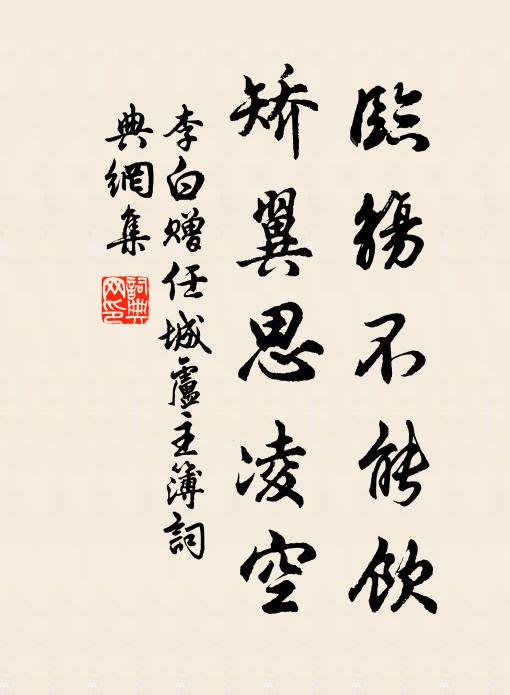 臨觴不能飲
矯翼思凌空
李白贈任城盧主簿詞
典網集
詞典网印